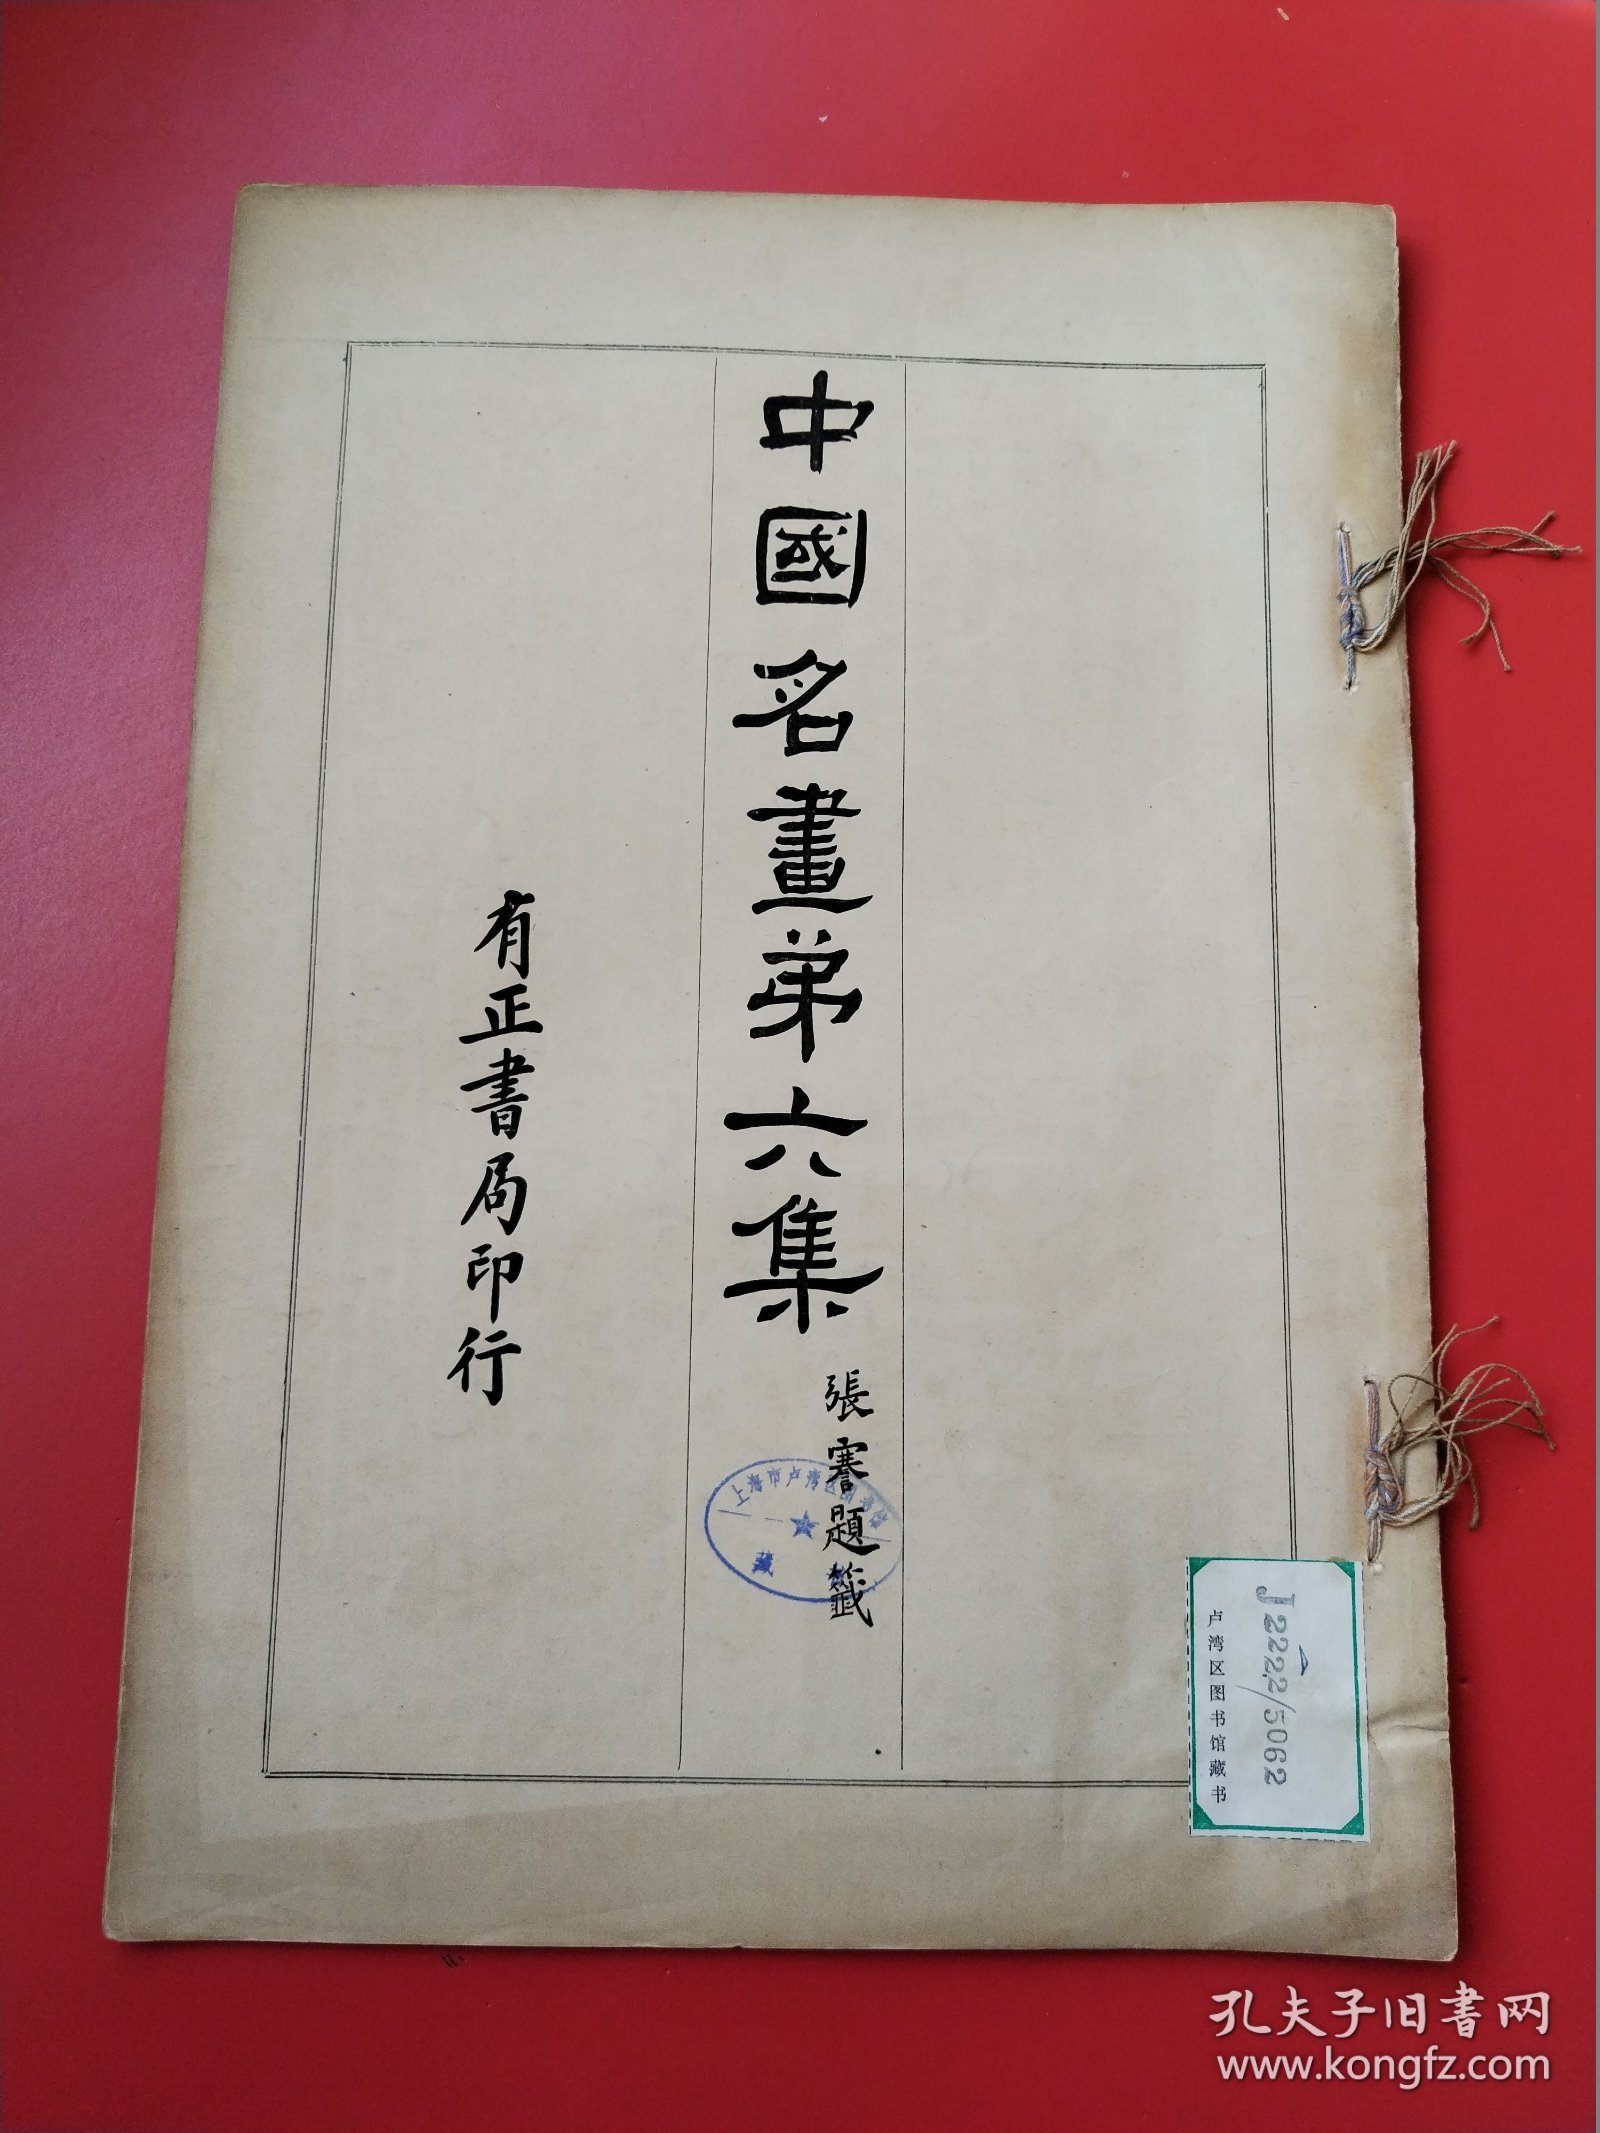 中國名畫弟六集
張謇題籤
有正書局印行
上海市卢湾区图书馆
藏
J222.2/5062
卢湾区图书馆藏书
孔夫子旧书网
www.kongfz.com